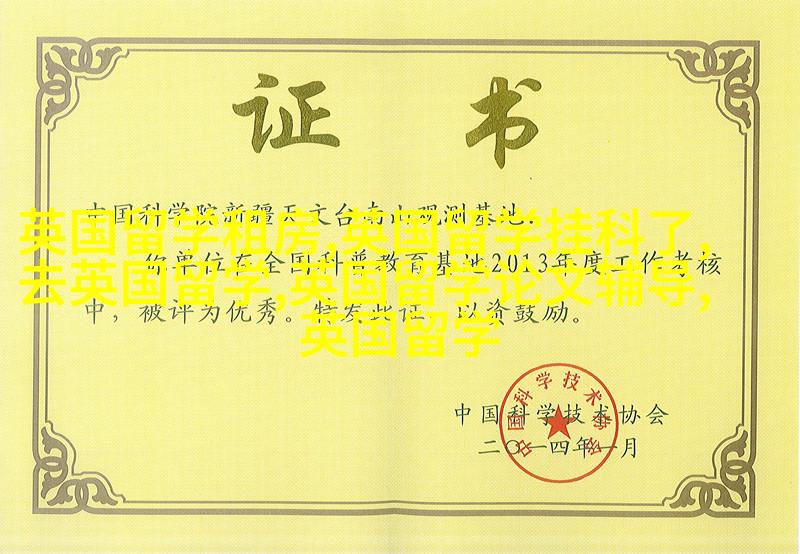 证书
中国科学院新疆天文台南山观测基地:
英国留学租房,英国留学挂科了,
你单位在全国科普教育基地2013年度工作考核
去英国留学,英国留学论文辅导,
中，被评为优秀。特发此证，以资鼓励。
英国留学
中国科学技术协会
二〇一四年一月
中国科学技术协会